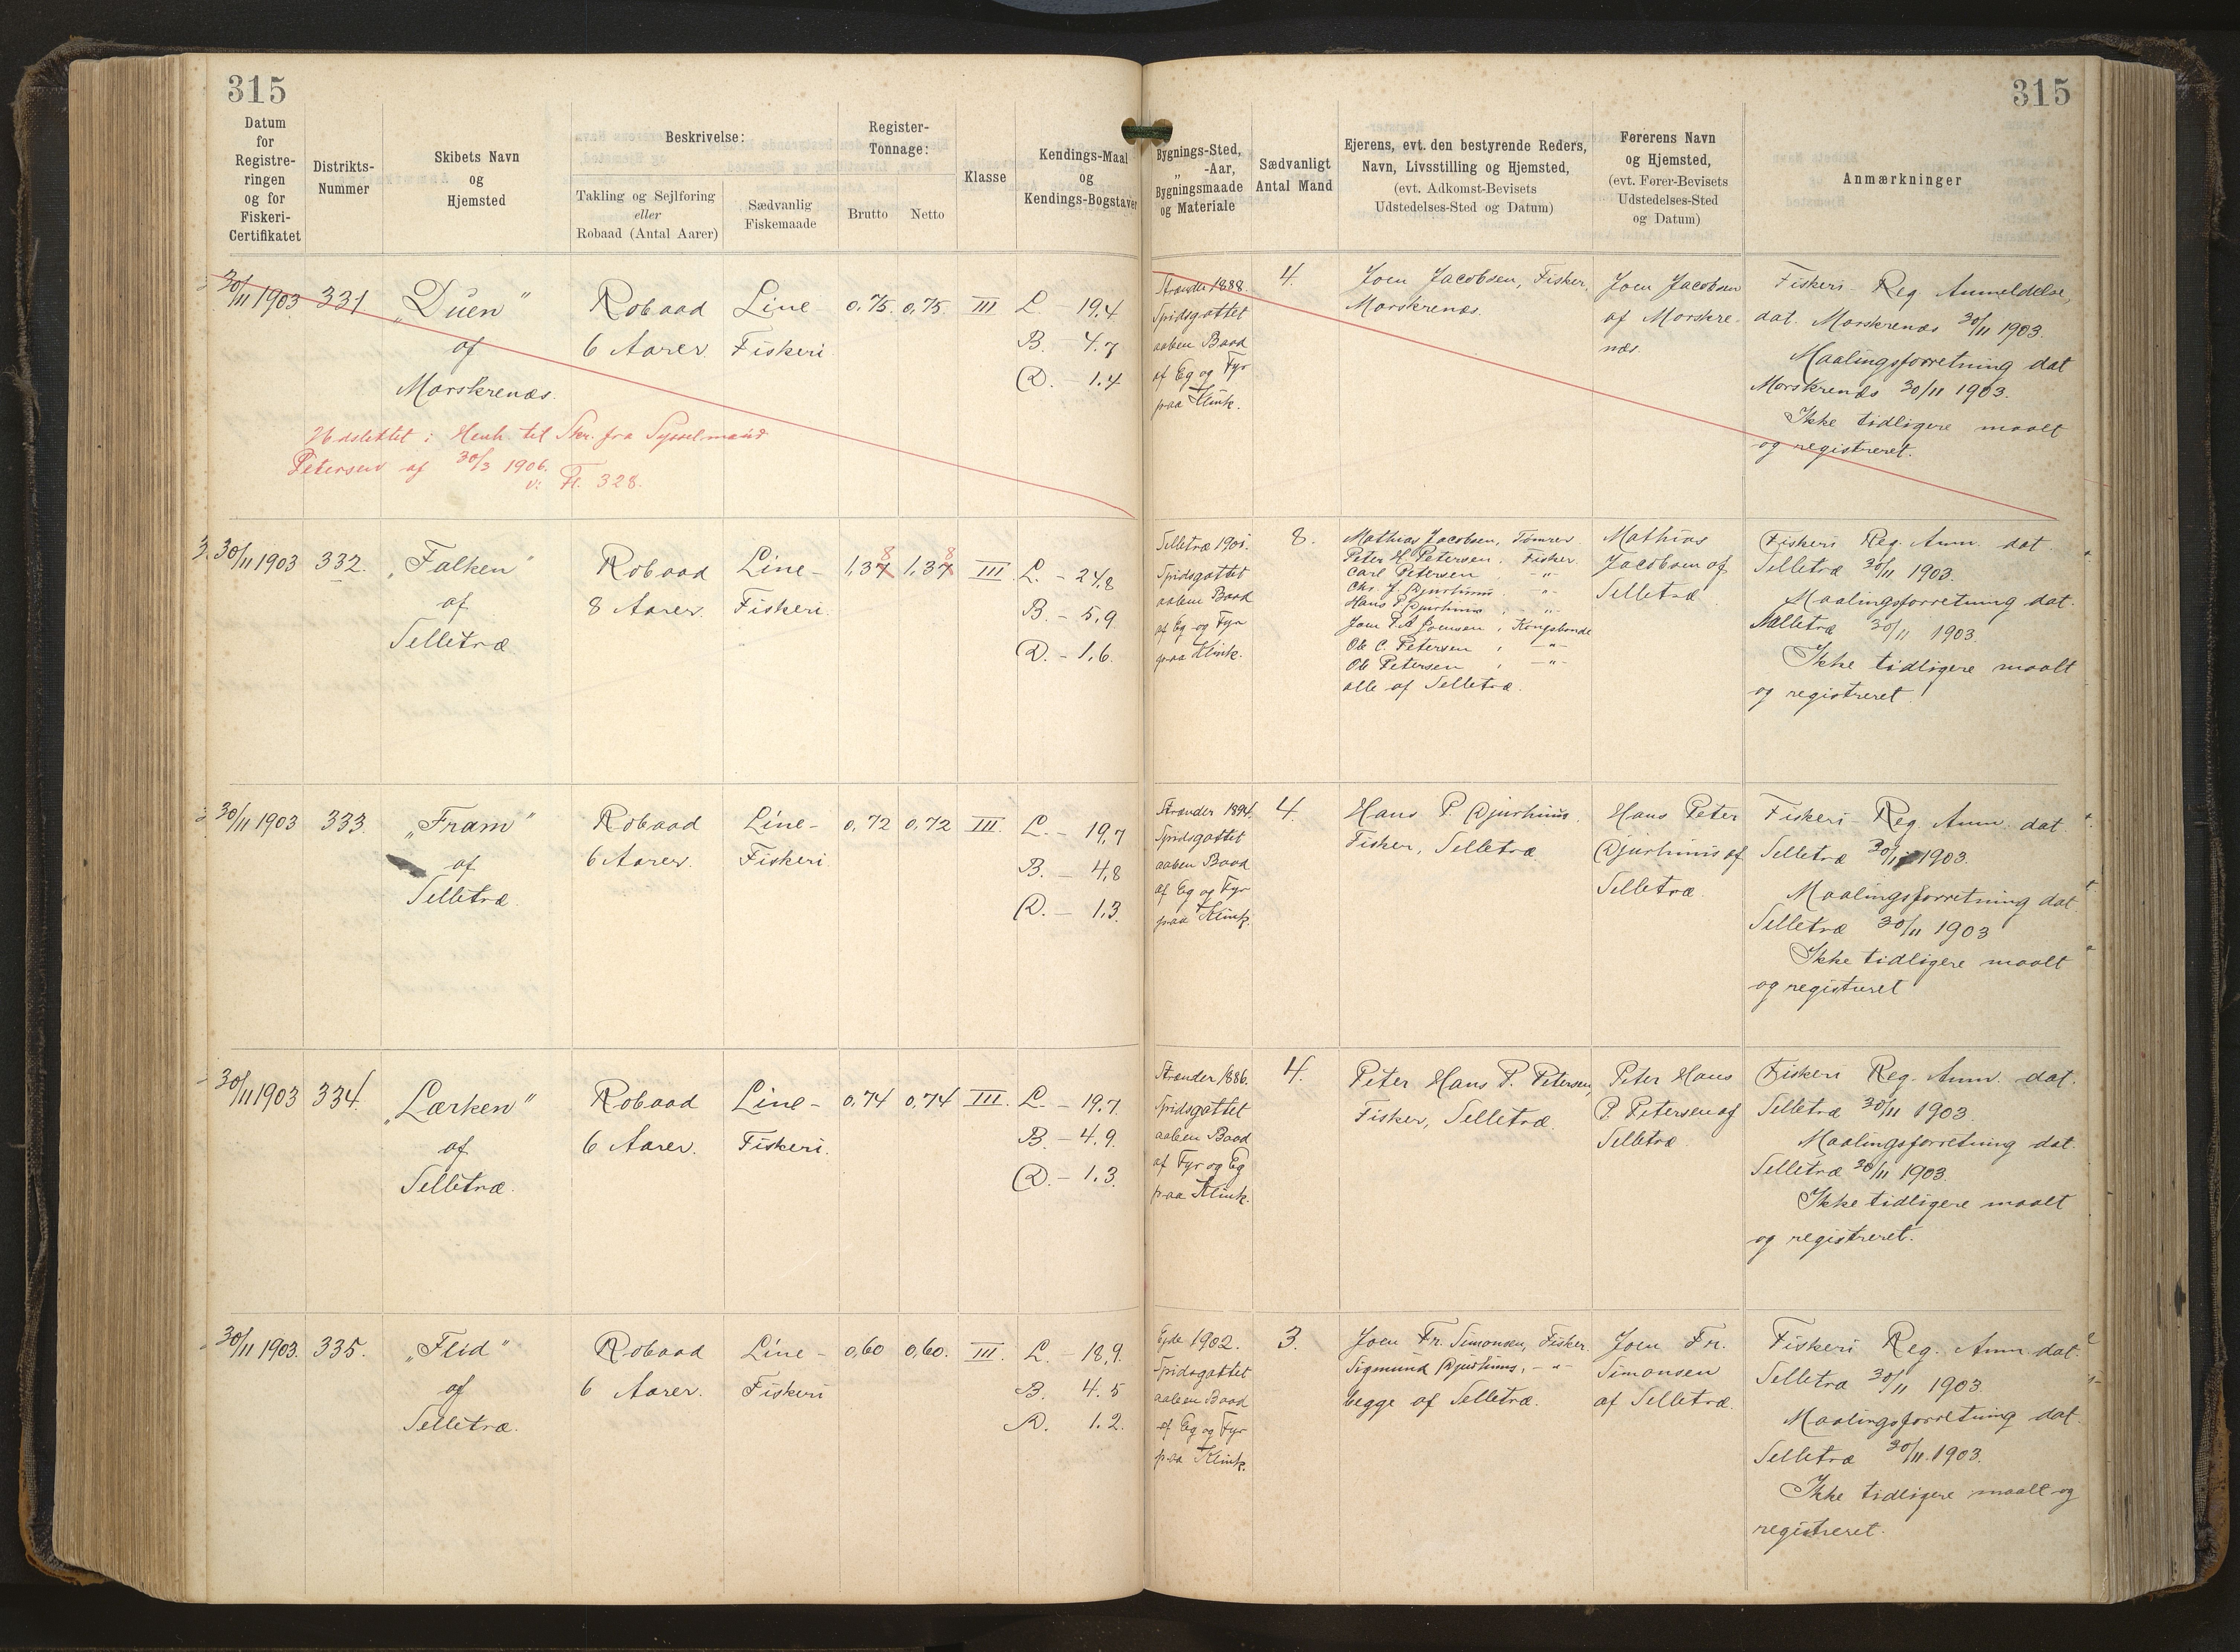 315
315
Datum
for
Registre-
ringen
og for
Fiskeri-
Certifikatet
Distrikts-
Nummer
Skibets Navn
og
Hjemsted
Beskrivelse:
Takling og Sejlføring
eller
Robaad (Antal Aarer)
Sædvanlig
Fiskemaade
Register-
Tonnage:
Brutto
Netto
Klasse
Kendings-Maal
og
Kendings-Bogstaver
Bygnings-Sted,
„ -Aar,
Bygningsmaade
og Materiale
Sædvanligt
Antal Mand
Ejerens, evt. den bestyrende Reders,
Navn, Livsstilling og Hjemsted,
(evt. Adkomst-Bevisets
Udstedelses-Sted og Datum)
Førerens Navn
og Hjemsted,
(evt. Fører-Bevisets
Udstedelses-Sted
og Datum)
Anmærkninger
30/11 1903
331
„Duen"
af
Morskrenæs.
Robaad
6 Aarer.
Line
Fiskeri
0,75
0,75
III
L. 19.4
B. - 4.7
D. - 1.4
Strender 1888.
Spidsgattet
aaben Baad
af Eg og Fyr
paa Klink.
4.
Joen Jacobsen, Fisker,
Morskrenæs.
Joen Jacobsen
af Morskre-
næs.
Fiskeri- Reg. Anmeldelse,
dat. Morskrenæs 30/11 1903.
Maalingsforretning dat
Morskrenæs 30/11 1903.
Ikke tidligere maalt
og registreret.
Udslettet i Henh. til Skr. fra Sysselmand
Petersen af 30/3 1906.
v: Fl. 328.
30/11 1903
332.
„Falken"
af
Selletræ
Robaad
8 Aarer.
Line-
Fiskeri.
8
1,37
8
1,37
III
L. - 24,8
B. - 5,9.
D. - 1,6.
Selletræ 1901.
Spidsgattet
aaben Baad
af Eg og Fyr
paa Klink.
8.
Mathias Jacobsen, Tømrer
Peter H. Petersen, Fisker.
Carl Petersen, -"-
Chr. J. Djurhuus, -"-
Hans P. Djurhuus, -"-
Joen P. A. Joensen, Kongsbonde
Ole C. Petersen, -"-
Ole Petersen, -"-
alle af Selletræ.
Mathias
Jacobsen af
Selletræ
Fiskeri Reg. Anm. dat.
Selletræ 30/11 1903.
Maalingsforretning dat.
Selletræ 30/11 1903.
Ikke tidligere maalt
og registreret!
30/11 1903
333.
„Fram"
af
Selletræ.
Robaad
6 Aarer.
Line-
Fiskeri
0,72
0,72
III.
L. - 19,7
B. - 4,8
D. - 1,3.
Strender 1894.
Spidsgattet
aaben Baad
af Eg og Fyr
paa Klink.
4.
Hans P. Djurhuus.
Fisker, Selletræ.
Hans Peter
Djurhuus af
Selletræ.
Fiskeri- Reg. Anm. dat.
Selletræ 30/11 1903.
Maalingsforretning dat.
Selletræ 30/11 1903
Ikke tidligere maalt
og registreret
30/11 1903
334.
„Lærken"
af
Selletræ.
Robaad
6 Aarer.
Line-
Fiskeri.
0,74
0,74
III.
L. - 19.7.
B. - 4,9.
D. - 1,3.
Strender 1886.
Spidsgattet
aaben Baad
af Fyr og Eg
paa Klink.
4.
Peter Hans P. Petersen,
Fisker, Selletræ.
Peter Hans
P. Petersen af
Selletræ.
Fiskeri Reg. Anm. dat.
Selletræ 30/11 1903
Maalingsforretning dat.
Selletræ 30/11 1903.
Ikke tidligere maalt
og registreret.
30/11 1903.
335.
„Flid"
af
Selletræ.
Robaad
6 Aarer.
Line-
Fiskeri
0,60
0,60.
III.
L. - 18,9.
B. 4.5
D. 1.2.
Ejde 1902.
Spidsgattet
aaben Baad
af Eg og Fyr
paa Klink.
3.
Joen Fr. Simonsen, Fisker
Sigmund Djurhuus, -"-
begge af Selletræ.
Joen Fr.
Simonsen
af Selletræ.
Fiskeri Reg. Anm. dat.
Selletræ 30/11 1903.
Maalingsforretning dat.
Selletræ 30/11 1903.
Ikke tidligere maalt og
registreret.